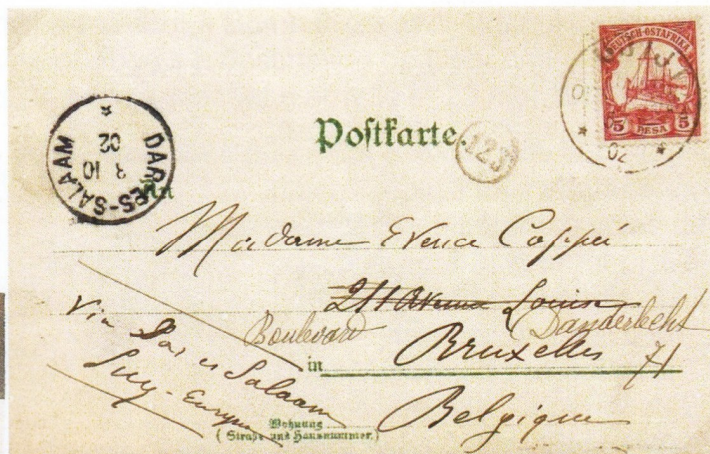 DEUTSCH-OSTAFRIKA
5 PESA 5
02
Postkarte
123
DAR-ES-SALAAM
3 10
02
An
Madame Evence Coppée
211 Avenue Louise
Boulevard Danderlecht
in Bruxelles 71
Belgique
Via Dar es Salaam
Wohnung
(Straße und Hausnummer.)